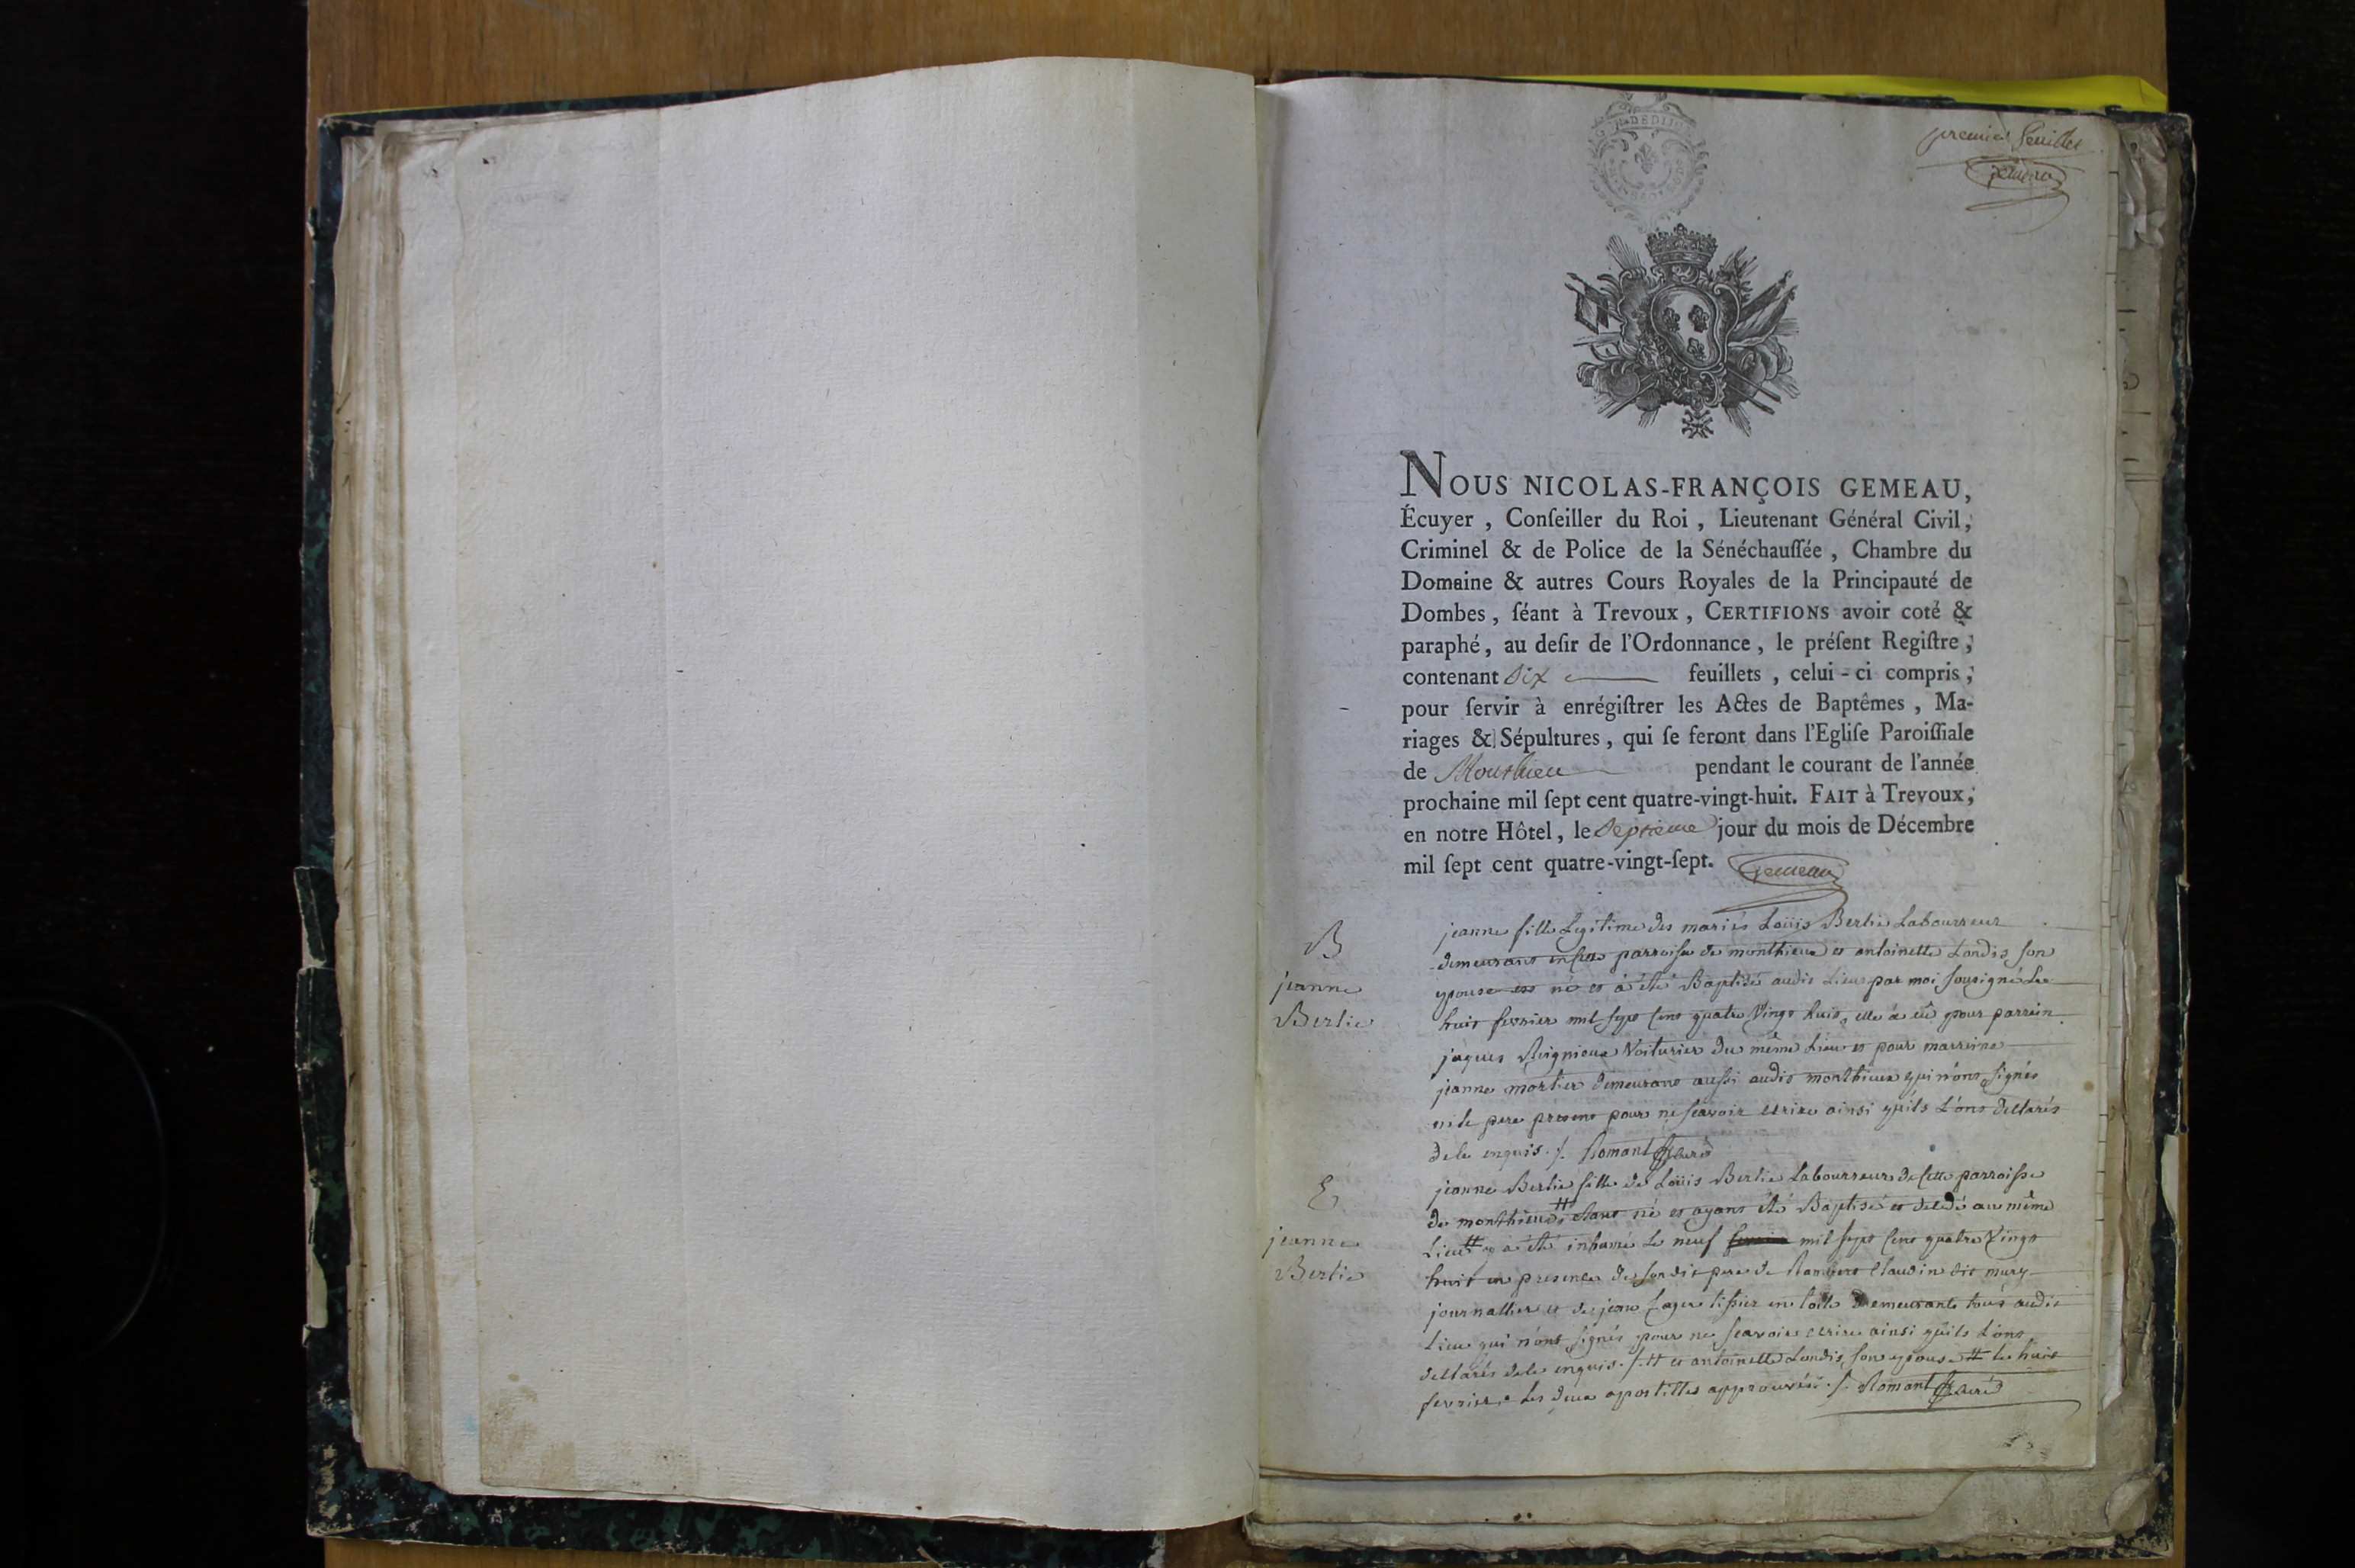 premier feuillet
Gemeau
G. N. DE DIJON
NOUS NICOLAS-FRANÇOIS GEMEAU,
Écuyer , Conſeiller du Roi , Lieutenant Général Civil,
Criminel & de Police de la Sénéchauſſée , Chambre du
Domaine & autres Cours Royales de la Principauté de
Dombes , ſéant à Trevoux , CERTIFIONS avoir coté &
paraphé, au deſir de l'Ordonnance , le préſent Regiſtre ,
contenant Six feuillets , celui-ci compris ,
pour ſervir à enrégiſtrer les Actes de Baptêmes , Ma-
riages & Sépultures, qui ſe feront dans l'Egliſe Paroiſſiale
de Monthieu pendant le courant de l'année
prochaine mil ſept cent quatre-vingt-huit. FAIT à Trevoux,
en notre Hôtel, le Septieme jour du mois de Décembre
mil ſept cent quatre-vingt-ſept. Gemeau
B
jeanne
Berlie
jeanne fille Legitime des mariés Loüis Berlie Labourreur
demeurant en cette parroisse de monthieux et antoinette Londis son
epouse est né et à été Baptisé audit Lieu par moi sousigné Le
huit fevrier mil sept cent quatre Vingt huit, elle à eû pour parrein
jaques Voiturier du même Lieu et pour marreine
jeanne mortier demeurant aussi audit monthieux qui n'ont signés
ni le pere present pour ne scavoir ecrire ainsi qu'ils L'ont declarés
de ce enquis ./. Romant Curé
E
jeanne
Berlie
jeanne Berlie fille de Loüis Berlie Labourreur de cette parroisse
de monthieux # étant né et ayant été Baptisé et decedé au même
Lieu # y à été inhumé Le neuf mil sept cent quatre Vingt
huit en presence de sondit pere de Rambert Claudin dit mury
journallier et de jean tissier en toile demeurants tous audit
Lieu qui n'ont signés pour ne scavoir ecrire ainsi qu'ils L'ont
declarés de ce enquis ./. # et antoinette Londis son epouse # le huit
fevrier. Les deux apostilles approuvés ./. Romant Curé